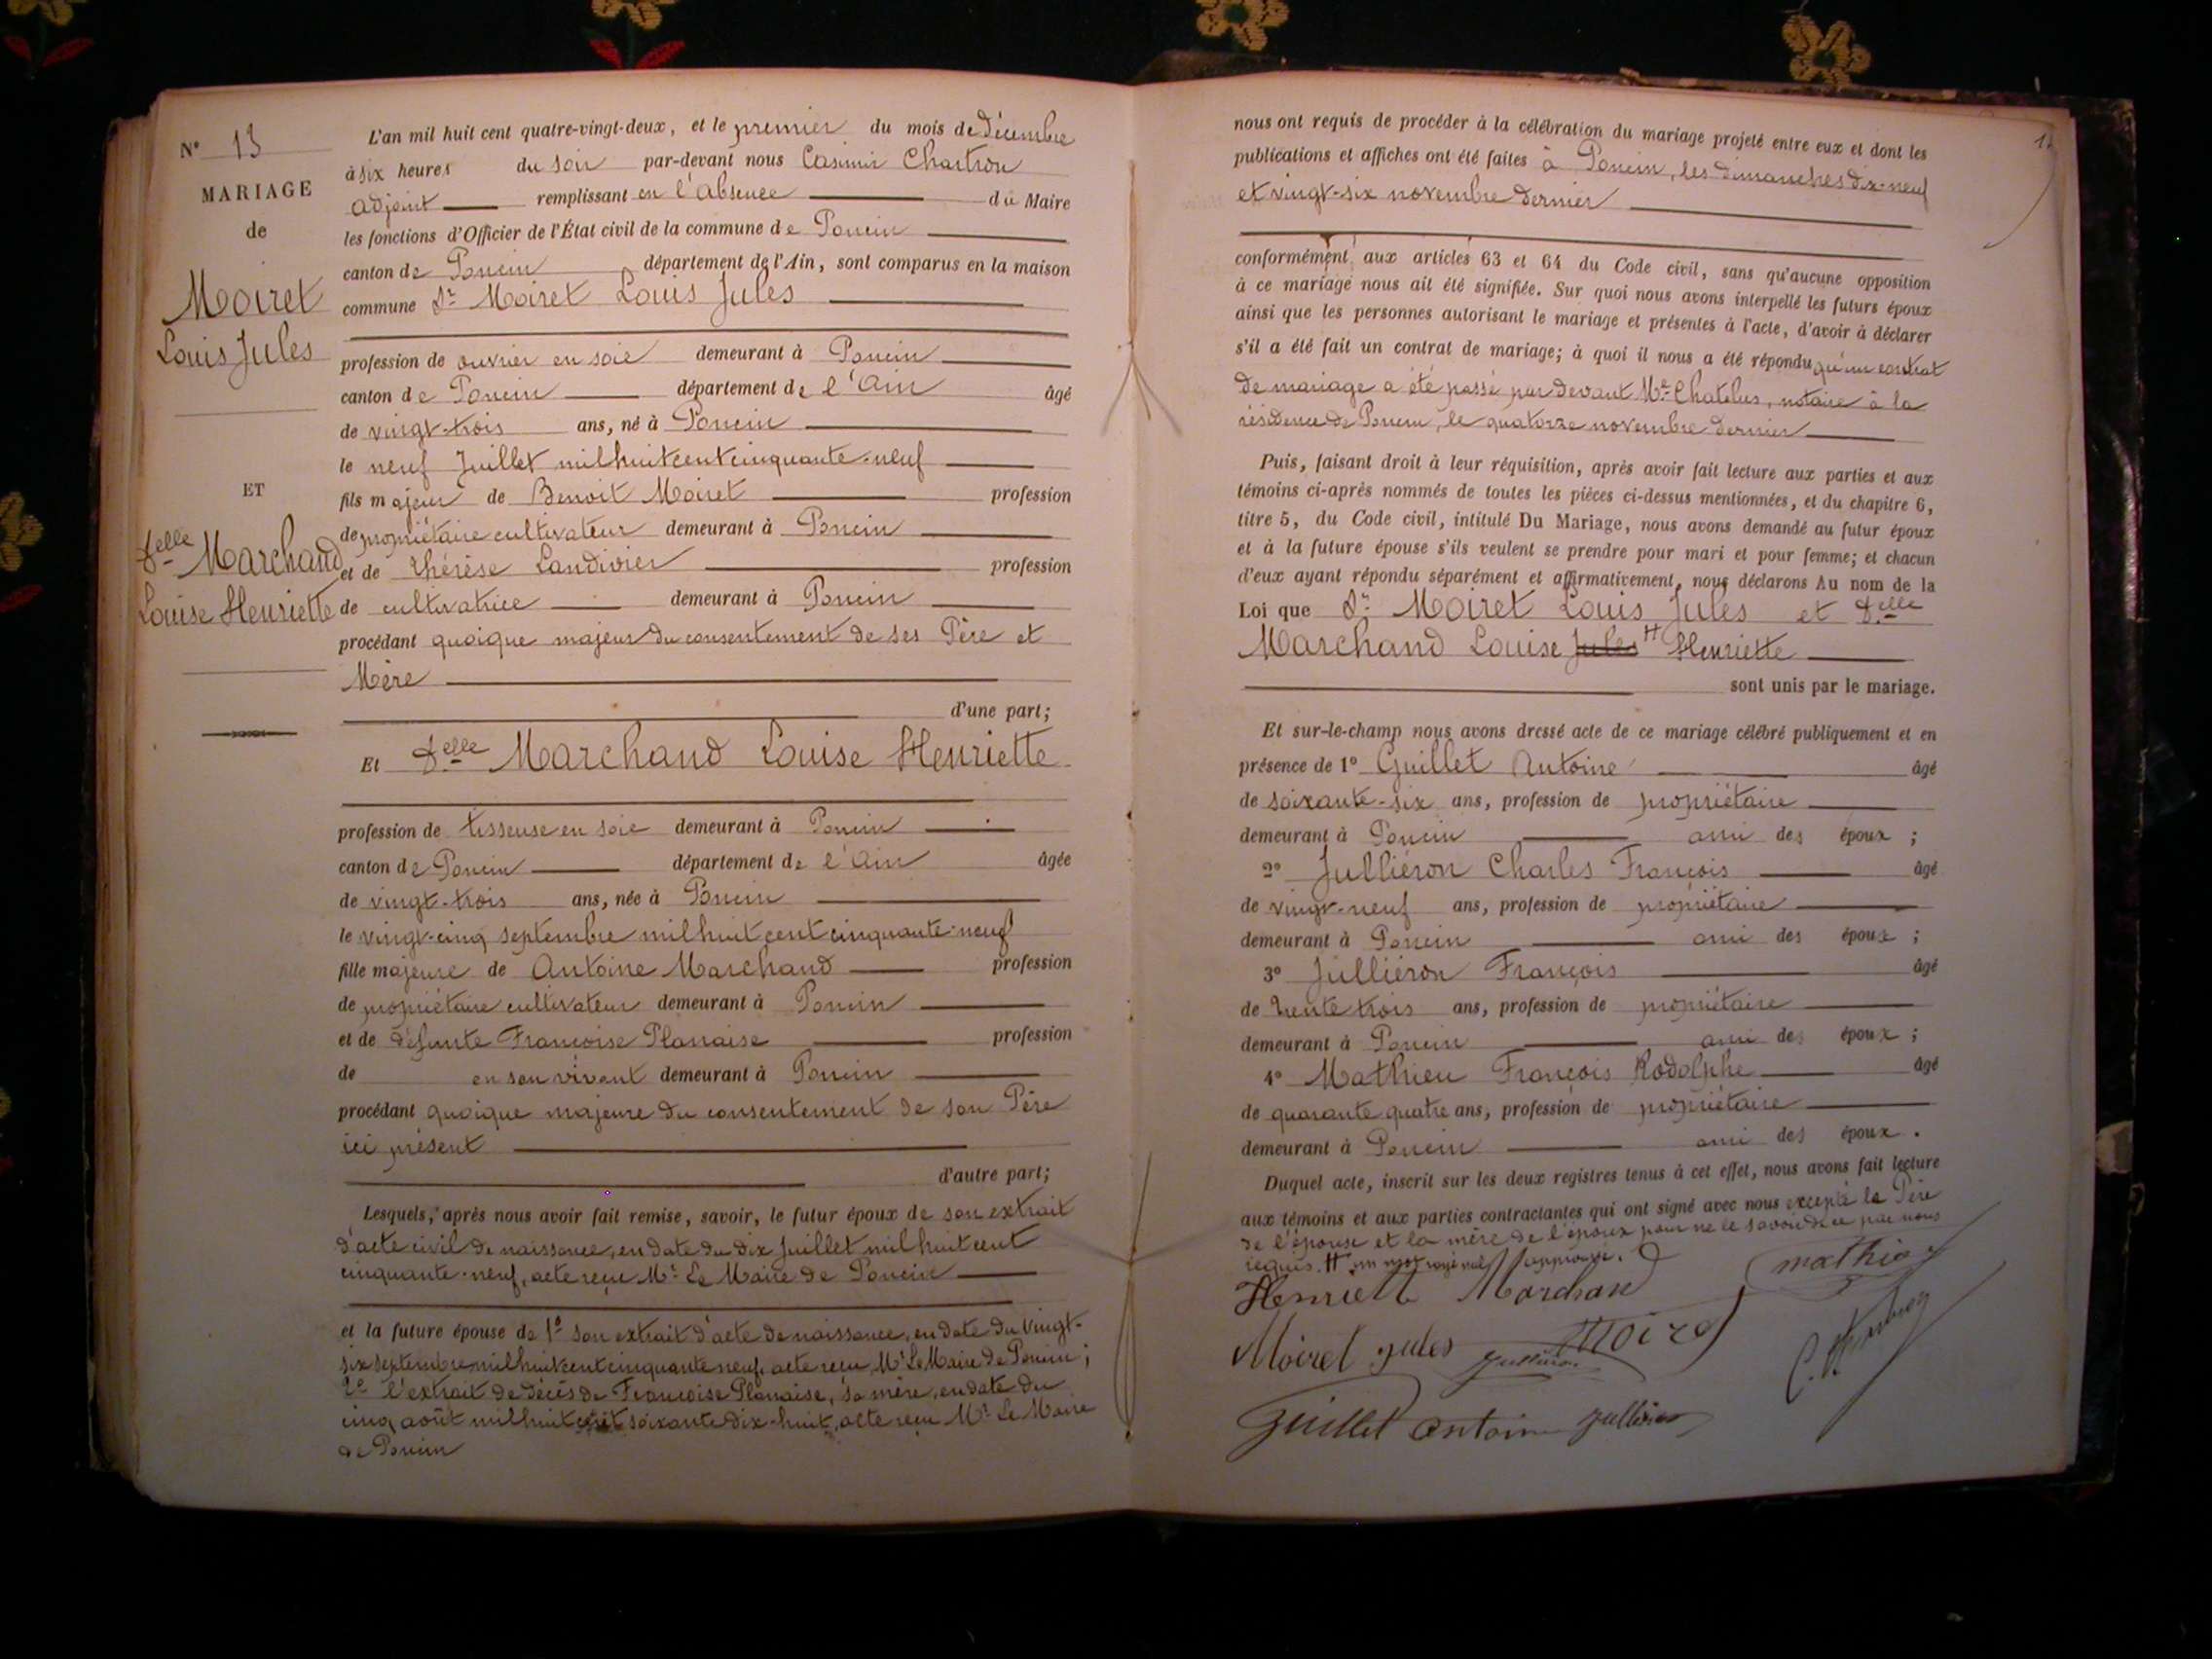 N° 13
MARIAGE
de
Moiret
Louis Jules
ET
Delle Marchand
Louise Henriette
L'an mil huit cent quatre-vingt-deux, et le premier du mois de Décembre
à six heures du soir par-devant nous Casimir Chartron
adjoint remplissant en l'absence du Maire
les fonctions d'Officier de l'État civil de la commune de Poncin
canton de Poncin département de l'Ain, sont comparus en la maison
commune Sr Moiret Louis Jules
profession de ouvrier en soie demeurant à Poncin
canton de Poncin département de l'Ain âgé
de vingt-trois ans, né à Poncin
le neuf Juillet mil huit cent cinquante-neuf
fils majeur de Benoit Moiret profession
de propriétaire cultivateur demeurant à Poncin
et de thérèse Landivier profession
de cultivatrice demeurant à Poncin
procédant quoique majeur du consentement de ses Père et
Mère
d'une part;
Et Delle Marchand Louise Henriette
profession de tisseuse en soie demeurant à Poncin
canton de Poncin département de l'Ain âgée
de vingt-trois ans, née à Poncin
le vingt-cinq septembre mil huit cent cinquante-neuf
fille majeure de Antoine Marchand profession
de propriétaire cultivateur demeurant à Poncin
et de défunte Françoise Planaise profession
de en son vivant demeurant à Poncin
procédant quoique majeure du consentement de son Père
ici présent
d'autre part;
Lesquels, après nous avoir fait remise, savoir, le futur époux de son extrait
d'acte civil de naissance, en date du dix Juillet mil huit cent
cinquante-neuf, acte reçu Mr Le Maire de Poncin
et la future épouse de 1° son extrait d'acte de naissance, en date du vingt-
six septembre mil huit cent cinquante neuf, acte reçu Mr Le Maire de Poncin;
2° l'extrait de décès de Françoise Planaise, sa mère, en date du
cinq août mil huit cent soixante dix-huit, acte reçu Mr Le Maire
de Poncin
nous ont requis de procéder à la célébration du mariage projeté entre eux et dont les
publications et affiches ont été faites à Poncin, les dimanches dix-neuf
et vingt-six novembre dernier
conformément aux articles 63 et 64 du Code civil, sans qu'aucune opposition
à ce mariage nous ait été signifiée. Sur quoi nous avons interpellé les futurs époux
ainsi que les personnes autorisant le mariage et présentes à l'acte, d'avoir à déclarer
s'il a été fait un contrat de mariage; à quoi il nous a été répondu qu'un contrat
de mariage a été passé par devant Me Chatelus, notaire à la
résidence de Poncin, le quatorze novembre dernier
Puis, faisant droit à leur réquisition, après avoir fait lecture aux parties et aux
témoins ci-après nommés de toutes les pièces ci-dessus mentionnées, et du chapitre 6,
titre 5, du Code civil, intitulé Du Mariage, nous avons demandé au futur époux
et à la future épouse s'ils veulent se prendre pour mari et pour femme; et chacun
d'eux ayant répondu séparément et affirmativement, nous déclarons Au nom de la
Loi que Sr Moiret Louis Jules et Delle
Marchand Louise Jules # Henriette
sont unis par le mariage.
Et sur-le-champ nous avons dressé acte de ce mariage célébré publiquement et en
présence de 1° Guillet Antoine âgé
de soixante-six ans, profession de propriétaire
demeurant à Poncin ami des époux ;
2° Julliéron Charles François âgé
de vingt-neuf ans, profession de propriétaire
demeurant à Poncin ami des époux ;
3° Julliéron François âgé
de trente trois ans, profession de propriétaire
demeurant à Poncin ami des époux ;
4° Mathieu François Rodolphe âgé
de quarante quatre ans, profession de propriétaire
demeurant à Poncin ami des époux .
Duquel acte, inscrit sur les deux registres tenus à cet effet, nous avons fait lecture
aux témoins et aux parties contractantes qui ont signé avec nous excepté le Père
de l'épouse et la mère de l'époux pour ne le savoir de ce par nous
requis. # un mot rayé nul approuvé.
Henriette Marchand mathieu
Moiret jules Moiret
Guillet antoine Jullieron